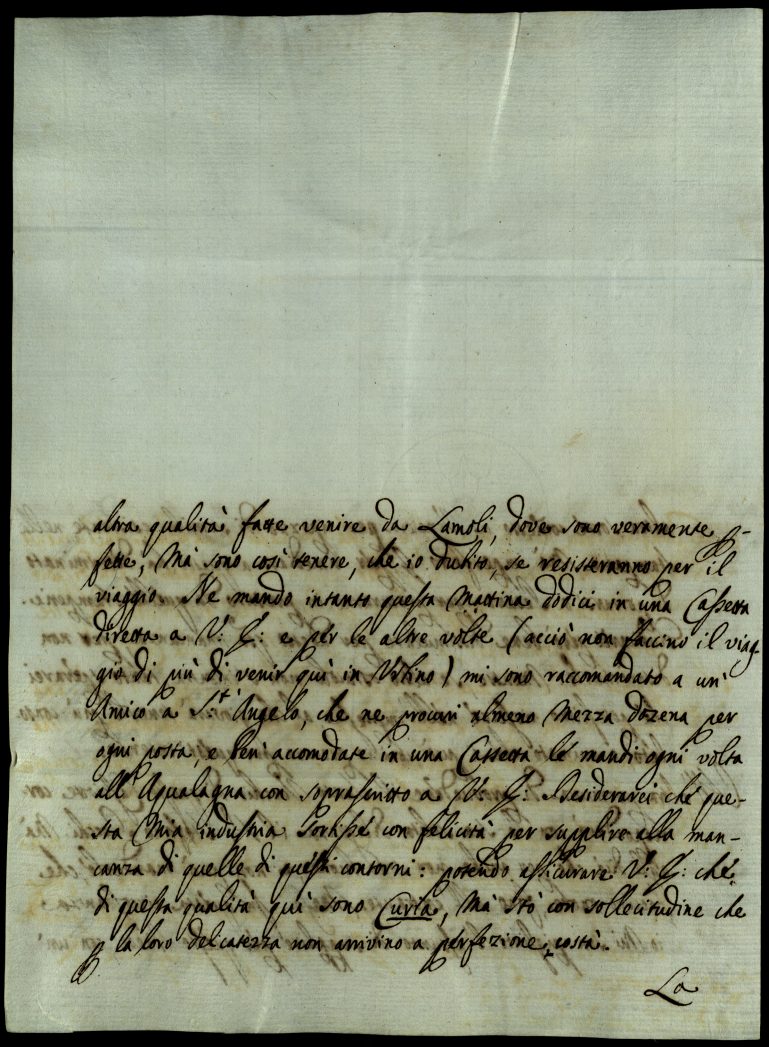 altra qualità fatte venire da Lamoli, dove sono veramente per-
fette, Mà sono così tenere, che io dubito, se resisteranno per il
viaggio. Ne mando intanto questa Mattina dodici in una Cassetta
diretta a V: E: e per le altre volte (acciò non faccino il viag-
gio di più di venir quì in Urbino) mi sono raccomandato a un'
Amico a S:t Angelo, che ne procuri almeno Mezza dozena per
ogni posta, e ben' accomodate in una Cassetta le mandi ogni volta
all' Aqualagna con soprascritto a V: E: Desiderarei che que-
sta Mia industria sortisse con felicità per supplire alla man-
canza di quelle di questi contorni: potendo assicurare V: E: che
di questa qualità quì sono, Mà stò con sollecitudine che
la loro delicatezza non arrivino a perfezione costà.
La